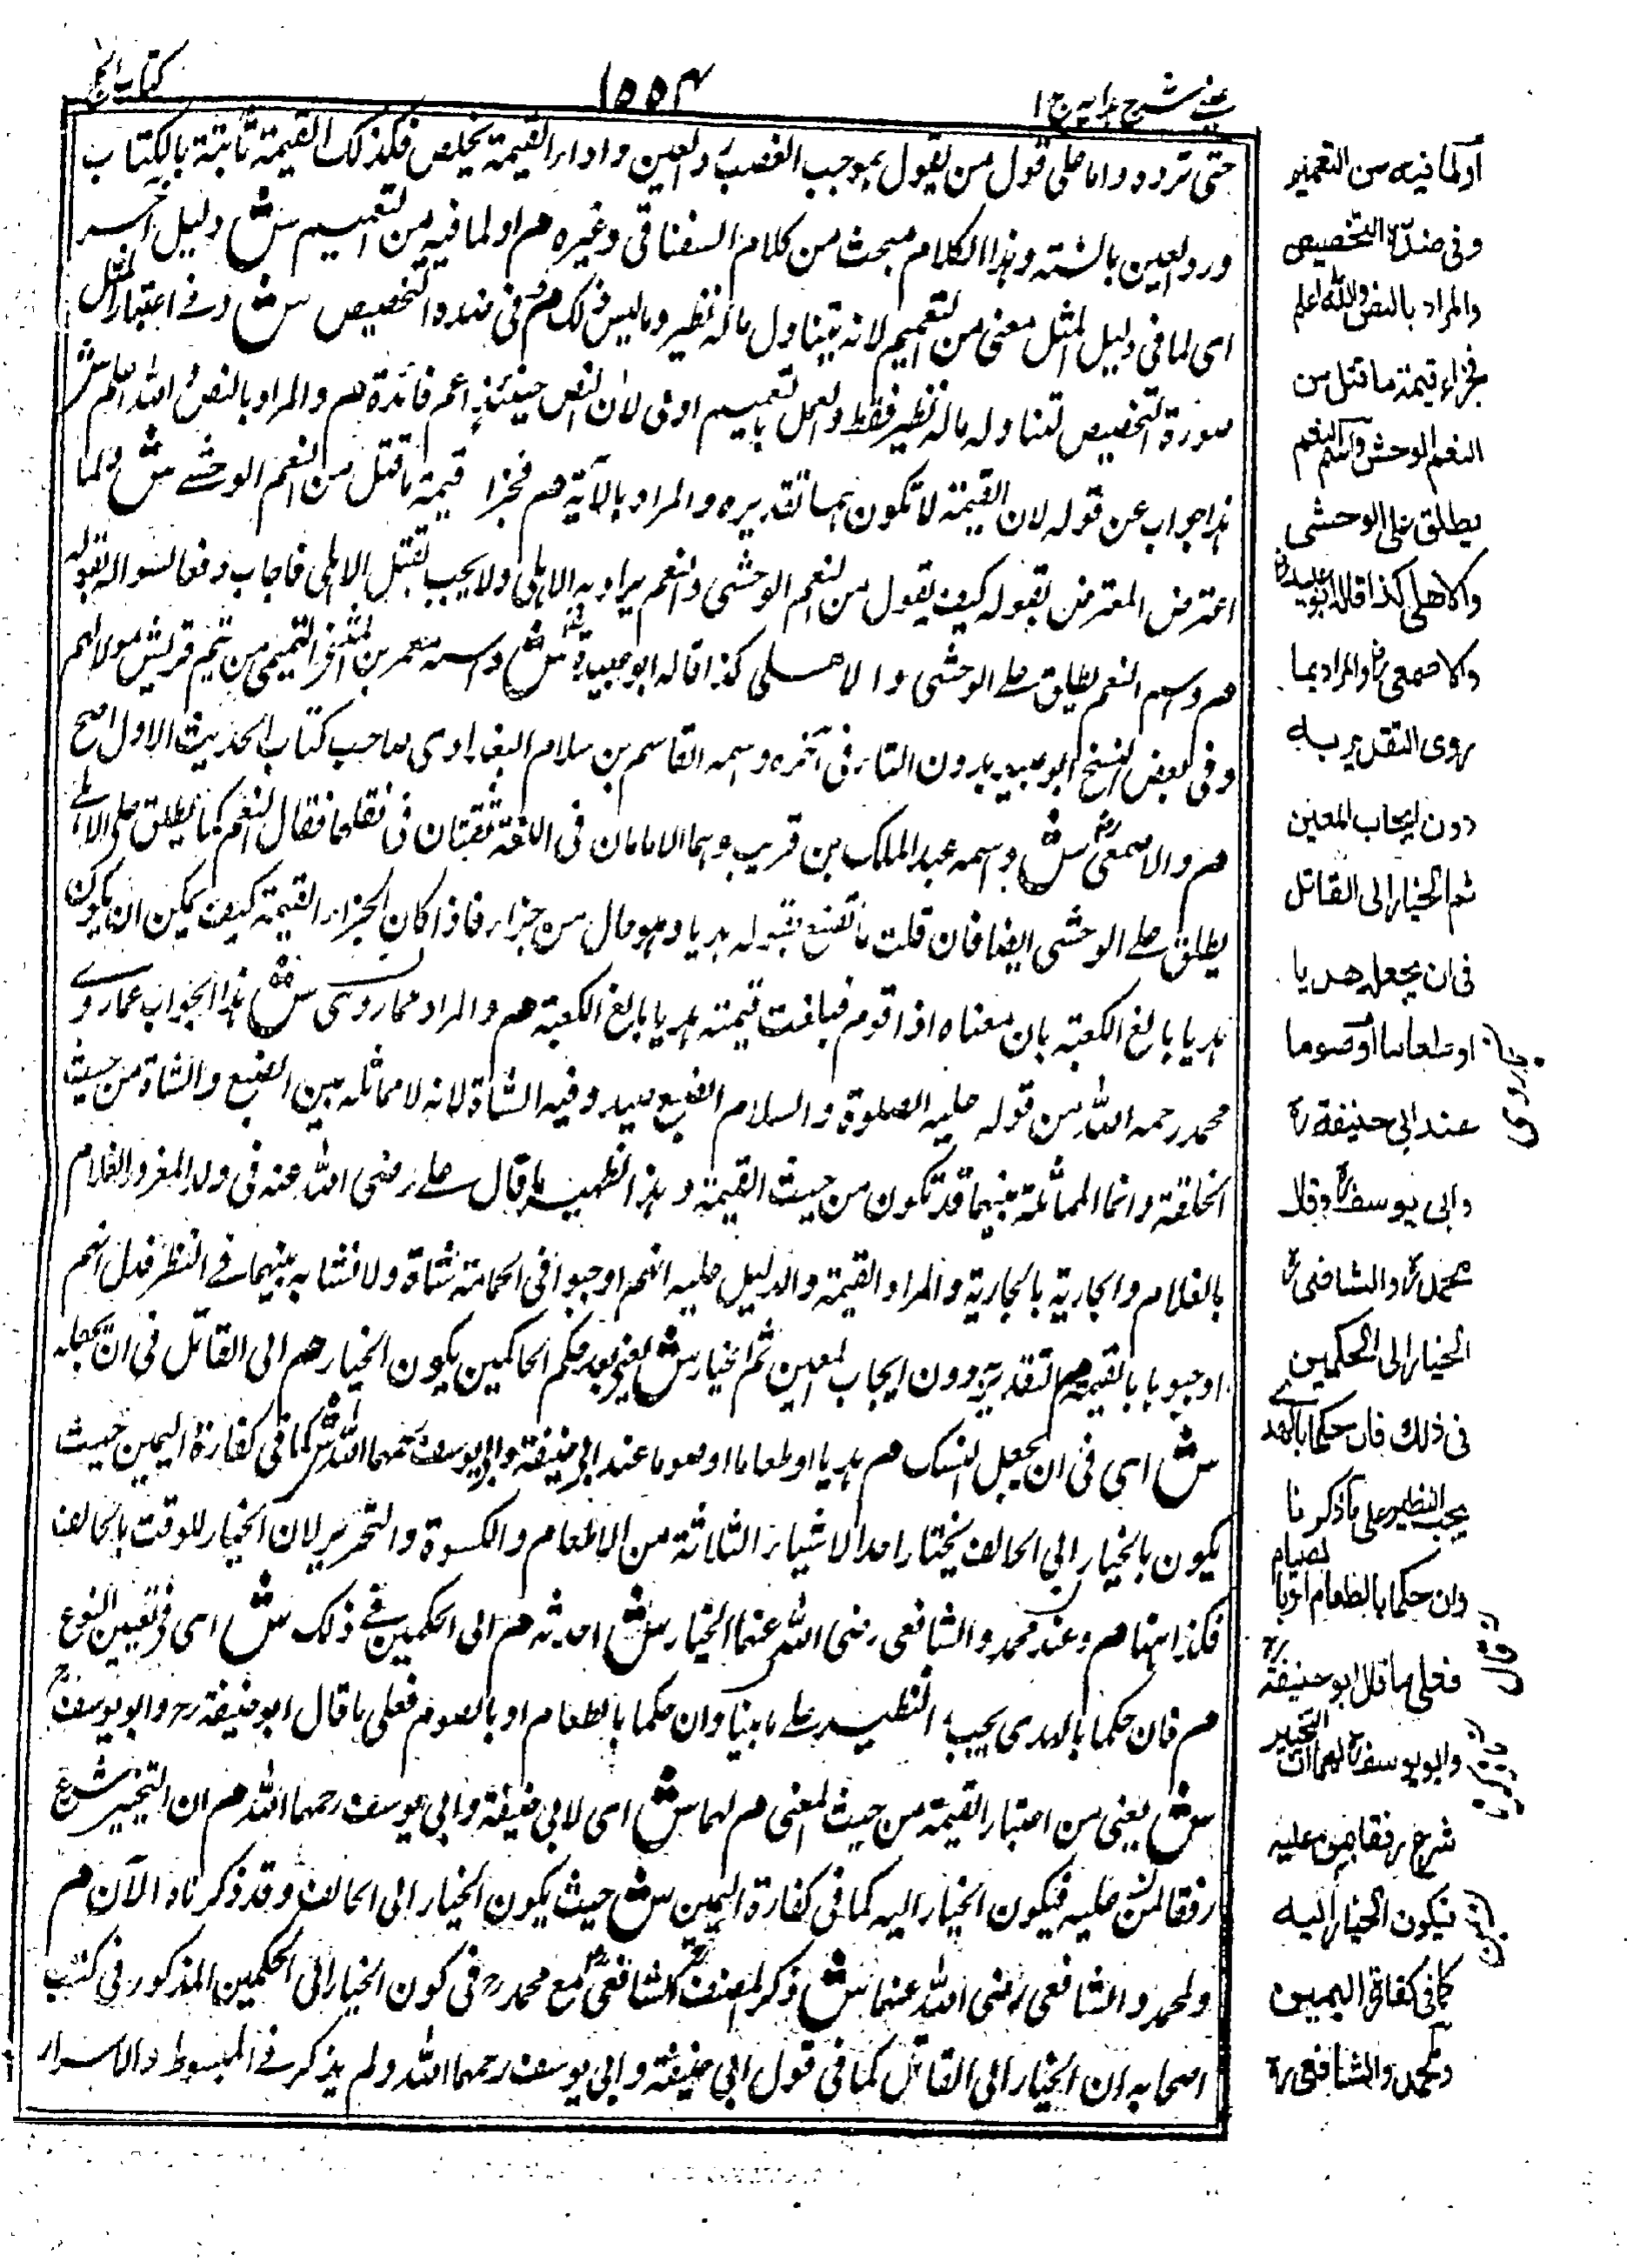 عینی شرح ہدایہ ج ۱
۱۵۵۴
کتاب الحج
حتی تردد واما علی قول من یقول بموجب الغصب رد العین واداء القیمة یخلص فکذلک القیمة ثابتة بالکتاب
ورد العین بالسنة وہذا الکلام مبحث من کلام السغناقی وغیرہ م اولما فیہ من التعمیم ش دلیل آخر
ای لما فی دلیل المثل معنی من التعمیم لانہ یتناول مالہ نظیر وما لیس کذلک م وفی ضدہ التخصیص ش وفی اعتبار المثل
صورة التخصیص لتناولہ مالہ نظیر فقط والعمل بالتعمیم اولی لان النص حینئذ اعم فائدة م والمراد بالنص واللہ اعلم ش
ہذا جواب عن قولہ لان القیمة لا تکون نعما تقدیرہ والمراد بالآیة م فجزاء قیمة ما قتل من النعم الوحشی ش ولما
اعترض المعترض بقولہ کیف یقول من النعم الوحشی والنعم یراد بہ الاہلی ولا یجب بقتل الاہلی فاجاب دفعا لسوالہ بقولہ
م واسم النعم یطلق علی الوحشی والاہلی کذا قالہ ابو عبیدة ش واسمہ معمر بن المثنی التیمی من تیم قریش مولاہم
وفی بعض النسخ ابو عبید بدون التاء فی آخرہ واسمہ القاسم بن سلام البغدادی صاحب کتاب الحدیث الاول اصح
م والاصمعی ش واسمہ عبد الملک بن قریب وہما الامامان فی اللغة ثقتان فی نقلہا فقال النعم کما یطلق علی الاہلی
یطلق علی الوحشی ایضا فان قلت ما تصنع بقولہ ہدیا وہو حال من جزاء فاذا کان الجزاء القیمة کیف یمکن ان یکون
ہدیا بالغ الکعبة بان معناہ اذا قوم فبلغت قیمتہ ہدیا بالغ الکعبة م والمراد مما روی ش ہذا الجواب عما روی
محمد رحمہ اللہ من قولہ علیہ الصلوة والسلام الضبع صید وفیہ الشاة لانہ لا مماثلہ بین الضبع والشاة من حیث
الخلقة وانما المماثلة بینہما قد تکون من حیث القیمة وہذا نظیر ما قال علی رضی اللہ عنہ فی ولد المغرور الغلام
بالغلام والجاریة بالجاریة والمراد القیمة والدلیل علیہ انہم اوجبوا فی الحمامة شاة ولا تشابہ بینہما فی النظر فدل انہم
اوجبوہا بالقیمة م التقدیر بہ دون ایجاب المعین ثم الخیار ش یعنی بعد حکم الحاکمین یکون الخیار م الی القاتل فی ان یجعلہ
ش ای فی ان یجعل النسک م ہدیا او طعاما او صوما عند ابی حنیفة وابی یوسف رحمہما اللہ ش کما فی کفارة الیمین حیث
یکون بالخیار الی الحالف یختار احد الاشیاء الثلاثة من الاطعام والکسوة والتحریر لان الخیار للوقت بالحالف
فکذا ہہنا م وعند محمد والشافعی رضی اللہ عنہما الخیار ش احدثہ م الی الحکمین فی ذلک ش ای فی تعیین النوع
م فان حکما بالہدی یجب النظیر علی ما بینا وان حکما بالطعام او بالصوم فعلی ما قال ابو حنیفة رح وابو یوسف رح
ش یعنی من اعتبار القیمة من حیث المعنی م لہما ش ای لابی حنیفة وابی یوسف رحمہما اللہ م ان التخییر شرع
رفقا لمن علیہ فیکون الخیار الیہ کما فی کفارة الیمین ش حیث یکون الخیار الی الحالف وقد ذکرناہ الآن م
ولمحمد والشافعی رضی اللہ عنہما ش ذکر المصنف الشافعی مع محمد رح فی کون الخیار الی الحکمین المذکور فی کتب
اصحابہ ان الخیار الی القاتل کما فی قول ابی حنیفة وابی یوسف رحمہما اللہ ولم یذکر فی المبسوط والاسرار
اولما فیہ من التعمیم
وفی ضدہ التخصیص
والمراد بالنص واللہ اعلم
فجزاء قیمة ما قتل من
النعم الوحش واسم النعم
یطلق علی الوحشی
والاهلی کذا قالہ ابو عبیدة
والاصمعی رح والمراد بما
روی التقدیر بہ
دون ایجاب المعین
ثم الخیار الی القاتل
فی ان یجعلہ هدیا
او طعاما او صوما
عند ابی حنیفة رح
وابی یوسف رح وقال
محمد رح والشافعی رح
الخیار الی الحکمین
فی ذلك فان حکما بالهدی
یجب النظیر علی ما ذکرنا
وان حکما بالطعام او بالصیام
فعلی ما قال ابو حنیفة رح
وابو یوسف رح لهما ان التخییر
شرع رفقا بمن علیہ
فیکون الخیار الیہ
کما فی کفارة الیمین
ولمحمد والشافعی رح